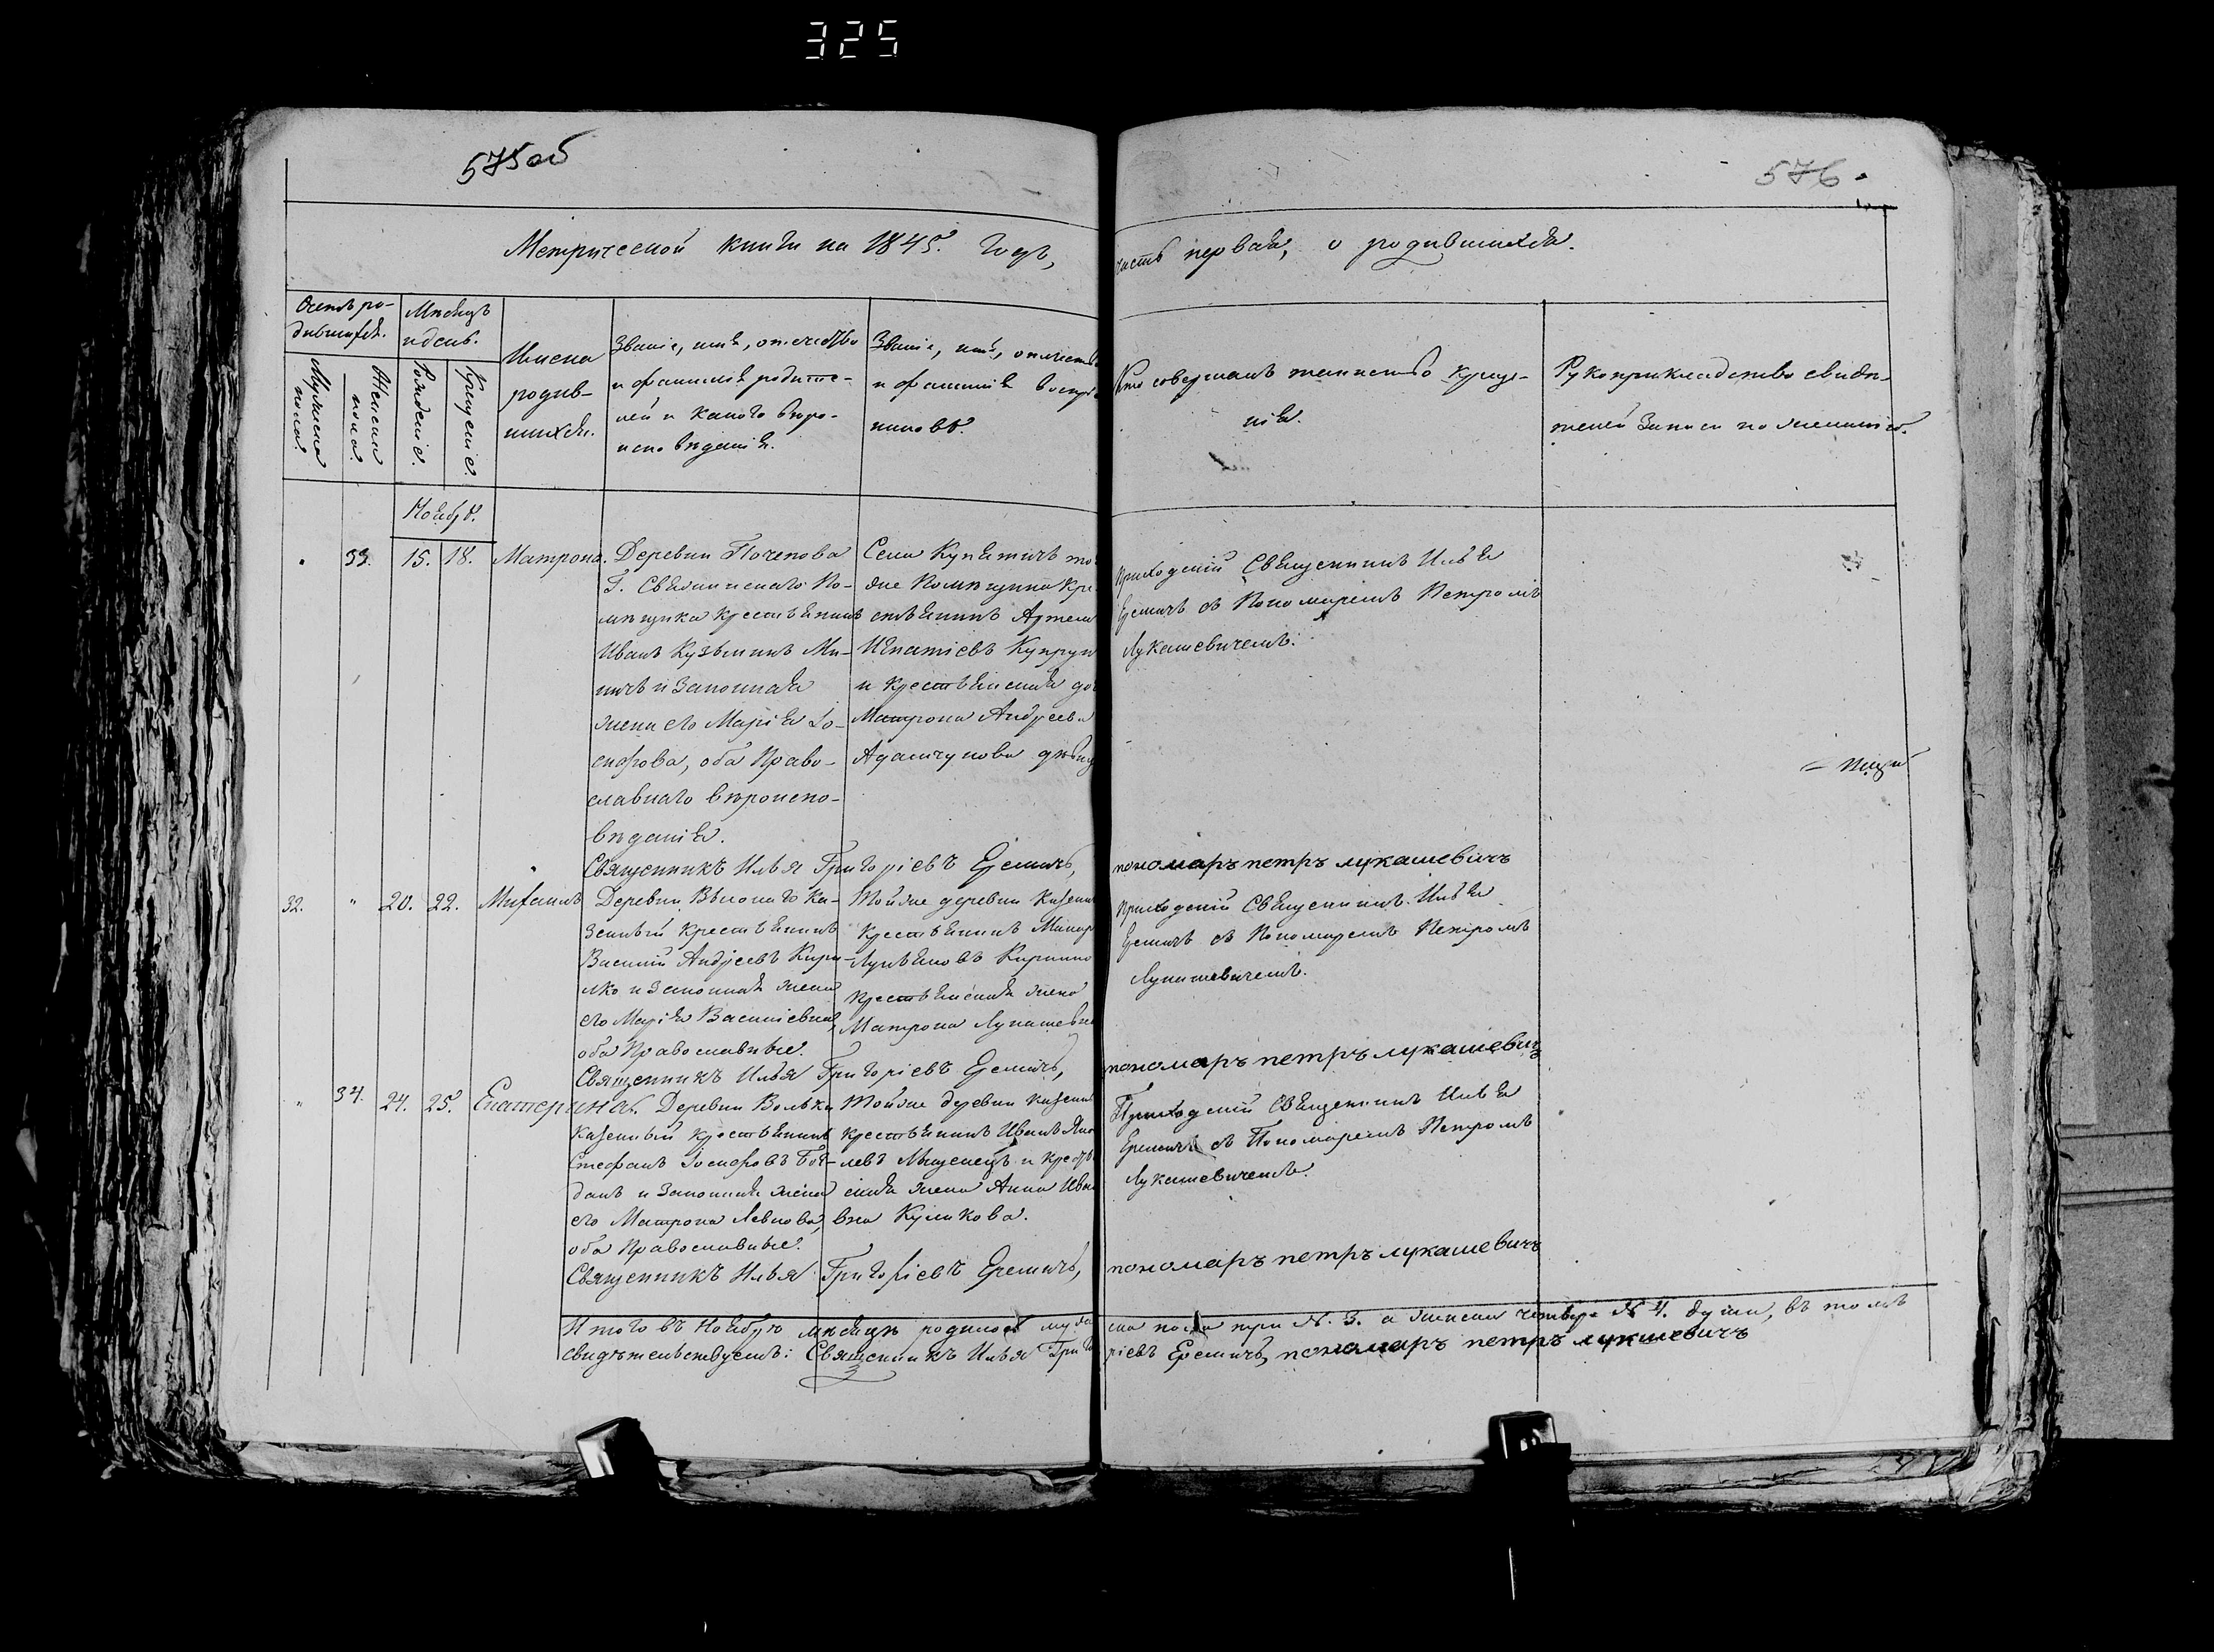 325
575об
576.
Метрической книги на 1845. годъ,
часть первая, о родившихся.
Счетъ ро-
дившихся.
Мужеска
пола.
Женска
пола.
Мѣсяцъ
и день.
Рожденіе.
Крещеніе.
Имена
родив-
шихся.
Званіе, имя, отечество
и фамилія родите-
лей и какого вѣро-
исповѣданія.
Званіе, имя, отечество
и фамилія воспрі
никовъ.
Кто совершалъ таинство креще-
нія.
Рукоприкладство свидѣ-
телей записи по желанію.
Ноябрь.
33. 15. 18. Матрона.
Деревни Почепова
Г. Свѣжинскаго По-
мѣщика крестьянинъ
Иванъ Кузьминъ Ми-
ничъ и законная
жена его Марія Іо-
сифова, оба Право-
славнаго вѣроиспо-
вѣданія.
Села Купятичъ то
же Помѣщика Кре
стьянинъ Артем
Игнатіевъ Купрун
и крестьянская до
Матрона Андреева
Адамчукова дѣвиц
Приходскій Священникъ Илья
Еремичъ съ Пономаремъ Петромъ
Лукашевичемъ.
Священникъ Илья Григоріевъ Еремичъ,
пономаръ петръ лукашевичъ
32. " 20. 22. Михаилъ
Деревни Вѣсолаго Ка-
зенный крестьянинъ
Василій Андреевъ Кири-
лко и законная жена
его Марія Василіевна,
оба Православные.
Тойже деревни казенн
крестьянинъ Макар
Лукьяновъ Кирилко
крестьянская жена
Матрона Лукашев
Приходскій Священникъ Илья
Еремичъ съ Пономаремъ Петромъ
Лукашевичемъ.
Священникъ Илья Григоріевъ Еремичъ,
пономаръ петръ лукашевичъ
" 34. 24. 25. Екатерина.
Деревни Волька
Казенный крестьянинъ
Стефанъ Іосифовъ Бог-
данъ и законная жена
его Матрона Левкова,
оба Православные.
Тойже деревни казенн
крестьянинъ Иванъ Яко
левъ Мыценецъ и крестья
ская жена Анна Ива
вна Куликова.
Приходскій Священникъ Илья
Еремичъ съ Пономаремъ Петромъ
Лукашевичемъ.
Священникъ Илья Григоріевъ Еремичъ,
пономаръ петръ лукашевичъ
Итого въ Ноябрѣ мѣсяцѣ родилось мужеска пола три № 3. а женска четыре № 4. души, въ томъ
свидѣтельствуемъ: Священникъ Илья Григоріевъ Еремичъ, пономаръ петръ лукашевичъ